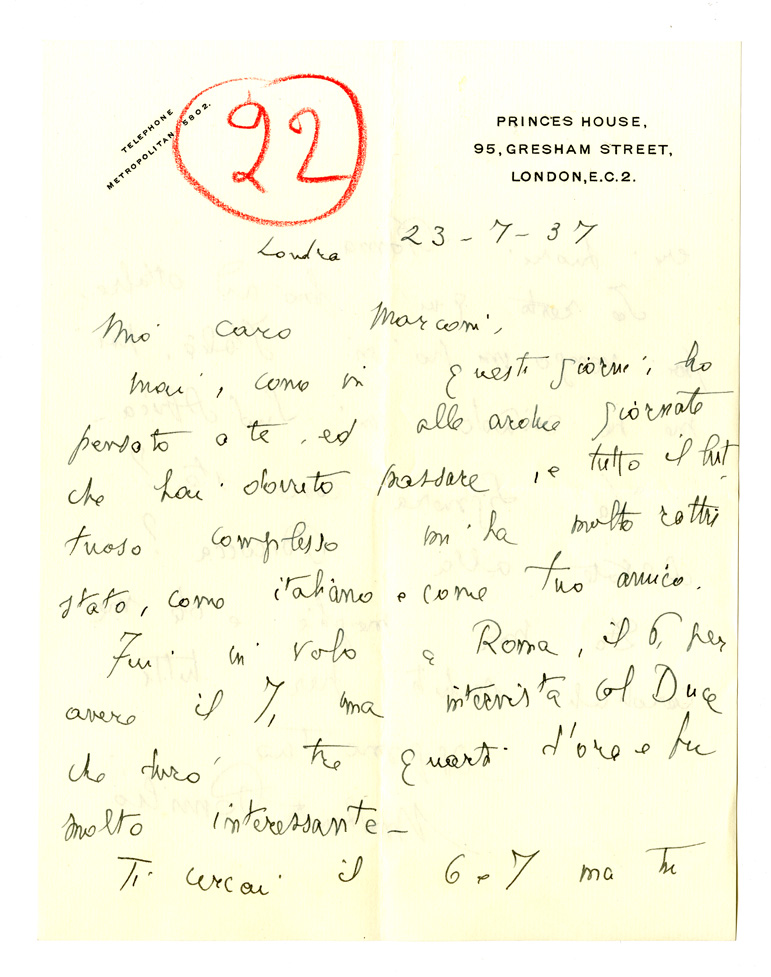 TELEPHONE
METROPOLITAN 5802.
22
PRINCES HOUSE,
95, GRESHAM STREET,
LONDON, E.C.2.
Londra 23-7-37
Mio caro Marconi,
mai, come in questi giorni, ho
pensato a te, ed alle ardue giornate
che hai dovuto passare, e tutto il lut,
tuoso complesso m'ha molto rattri
stato, come italiano e come tuo amico.
Fui in volo a Roma, il 6, per
avere il 7, ma intervista col Duce
che durò tre quarti d'ora e fu
molto interessante-
Ti cercai il 6 e 7 ma tu